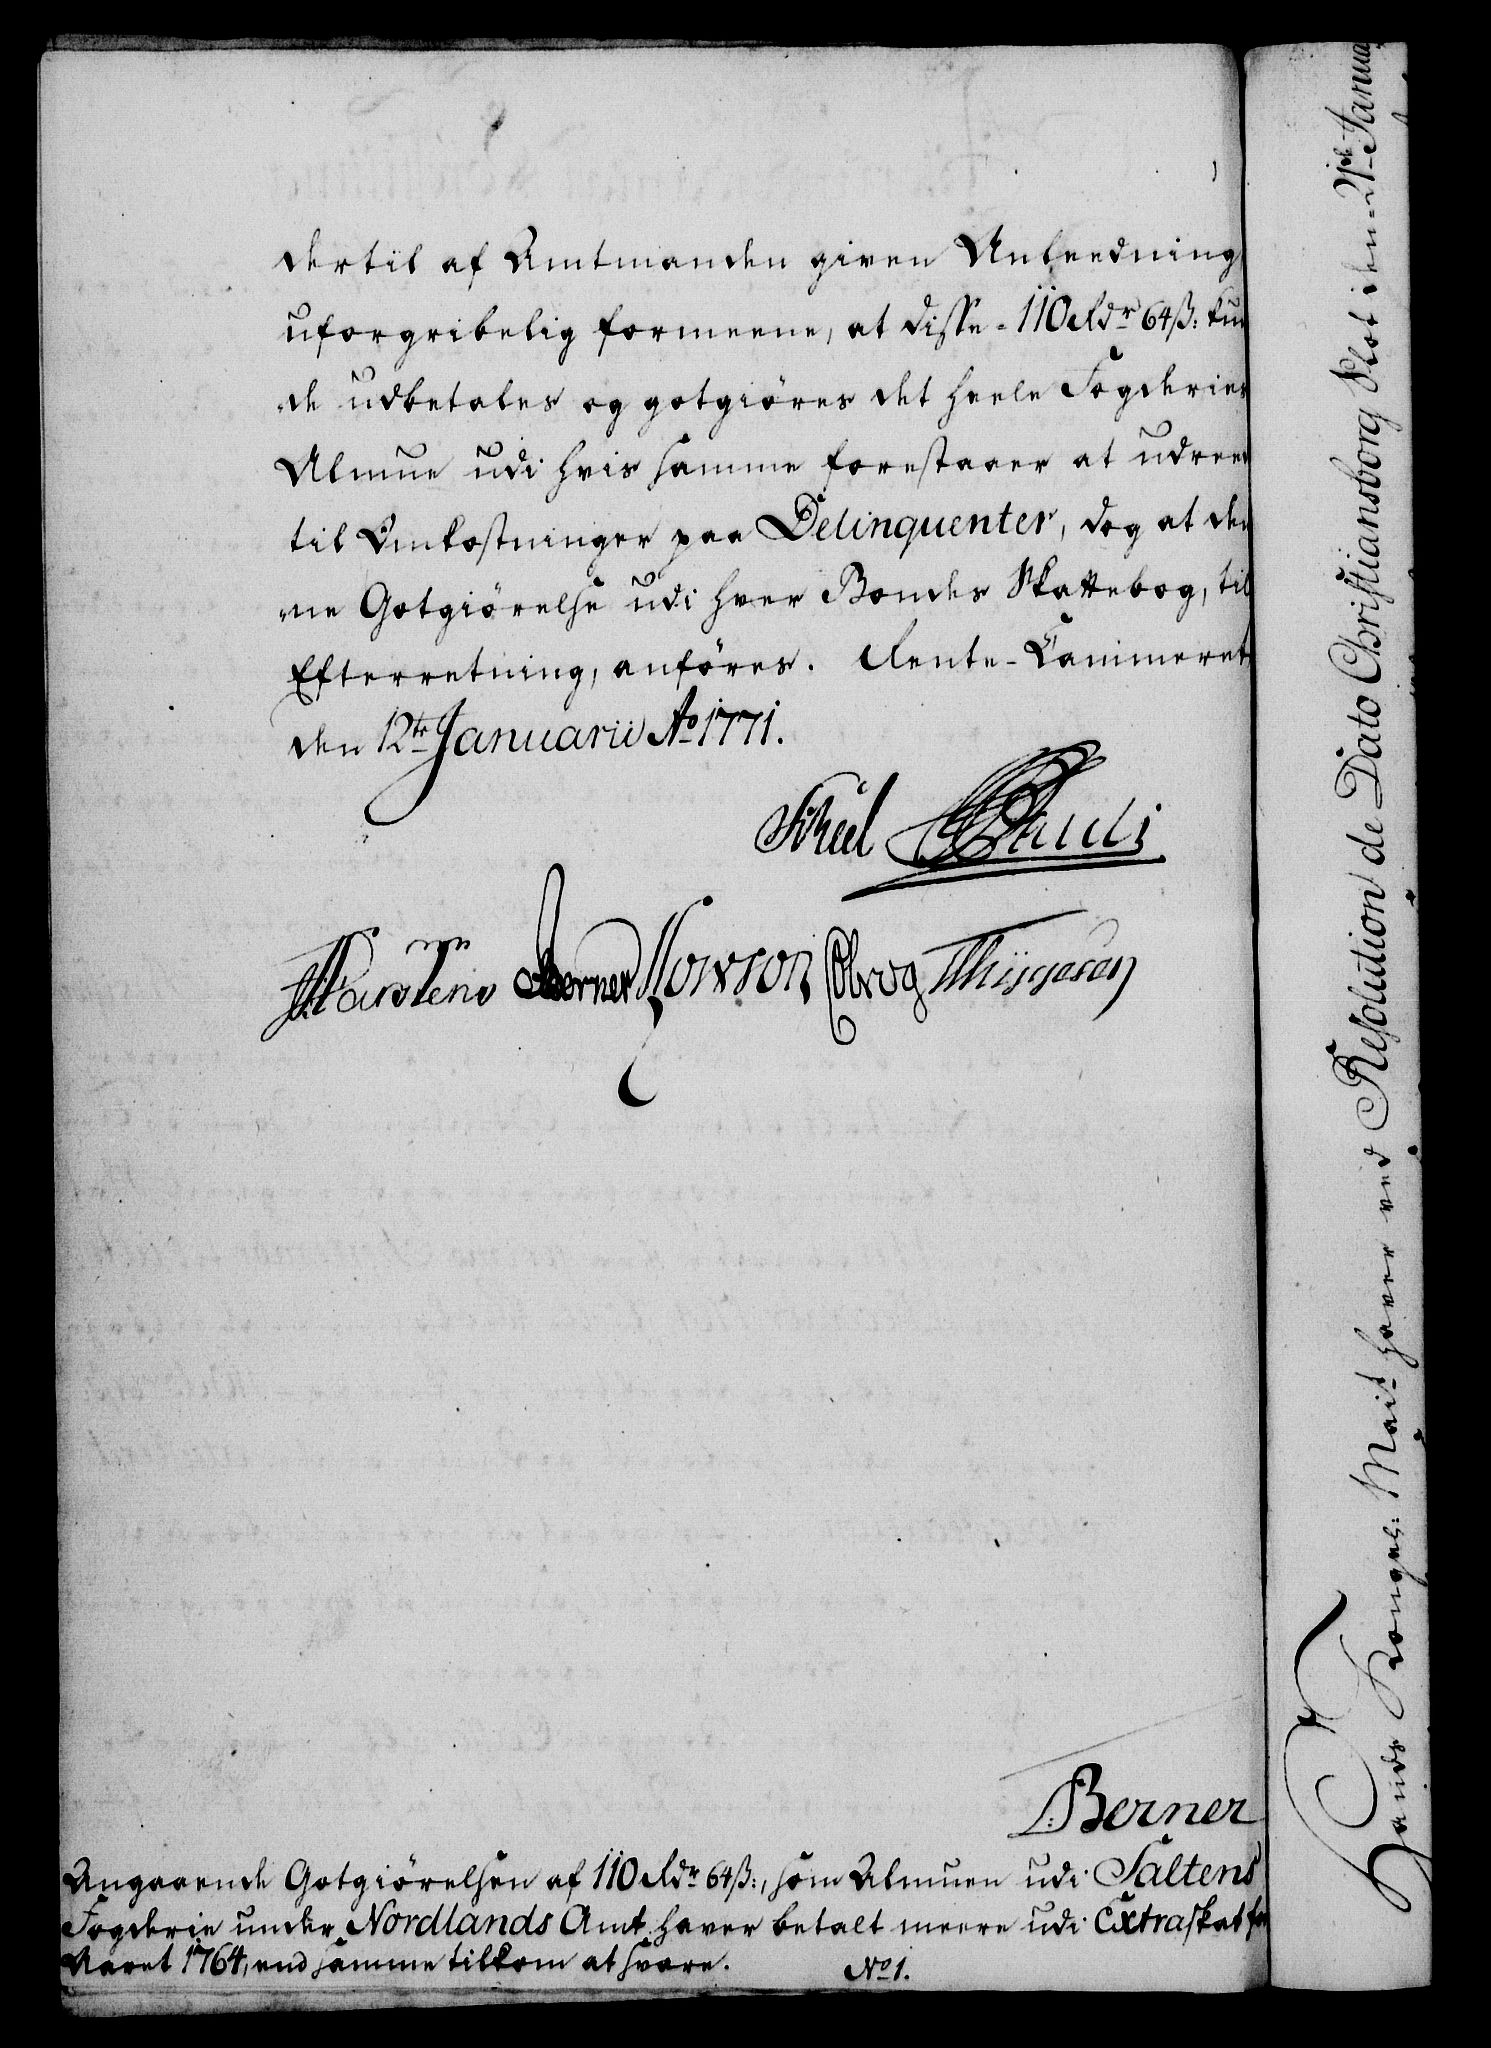 dertil af Amtmanden given Anleedning
uforgribelig formeene, at disse = 110 Rdr 64 ß: kun
de udbetales og godtgiöres det heele Fogderies
Almue udi hvis samme forestaaer at udrede
til Omkostninger paa Delinquenter, dog at den
ne Gotgiörelse udi hver Bondes Skattebog, til
Efterretning, anföres. Rente-Cammeret
den 12te Januarii Ao 1771.
Scheel Pauli
Karstens Berner Howson Obrog Thygesen
L: Berner
Angaaende Gotgiörelsen af 110 Rdr 64 ß:, som Almuen udi Saltens
Fogderie under Nordlands Amt haver betalt meere udi Extraskat for
Aaret 1764, end samme tilkom at svare.
No 1.
Hands Kongel: Mait haver ved Resolution de Dato Christiansborg Slot den 21de Janua